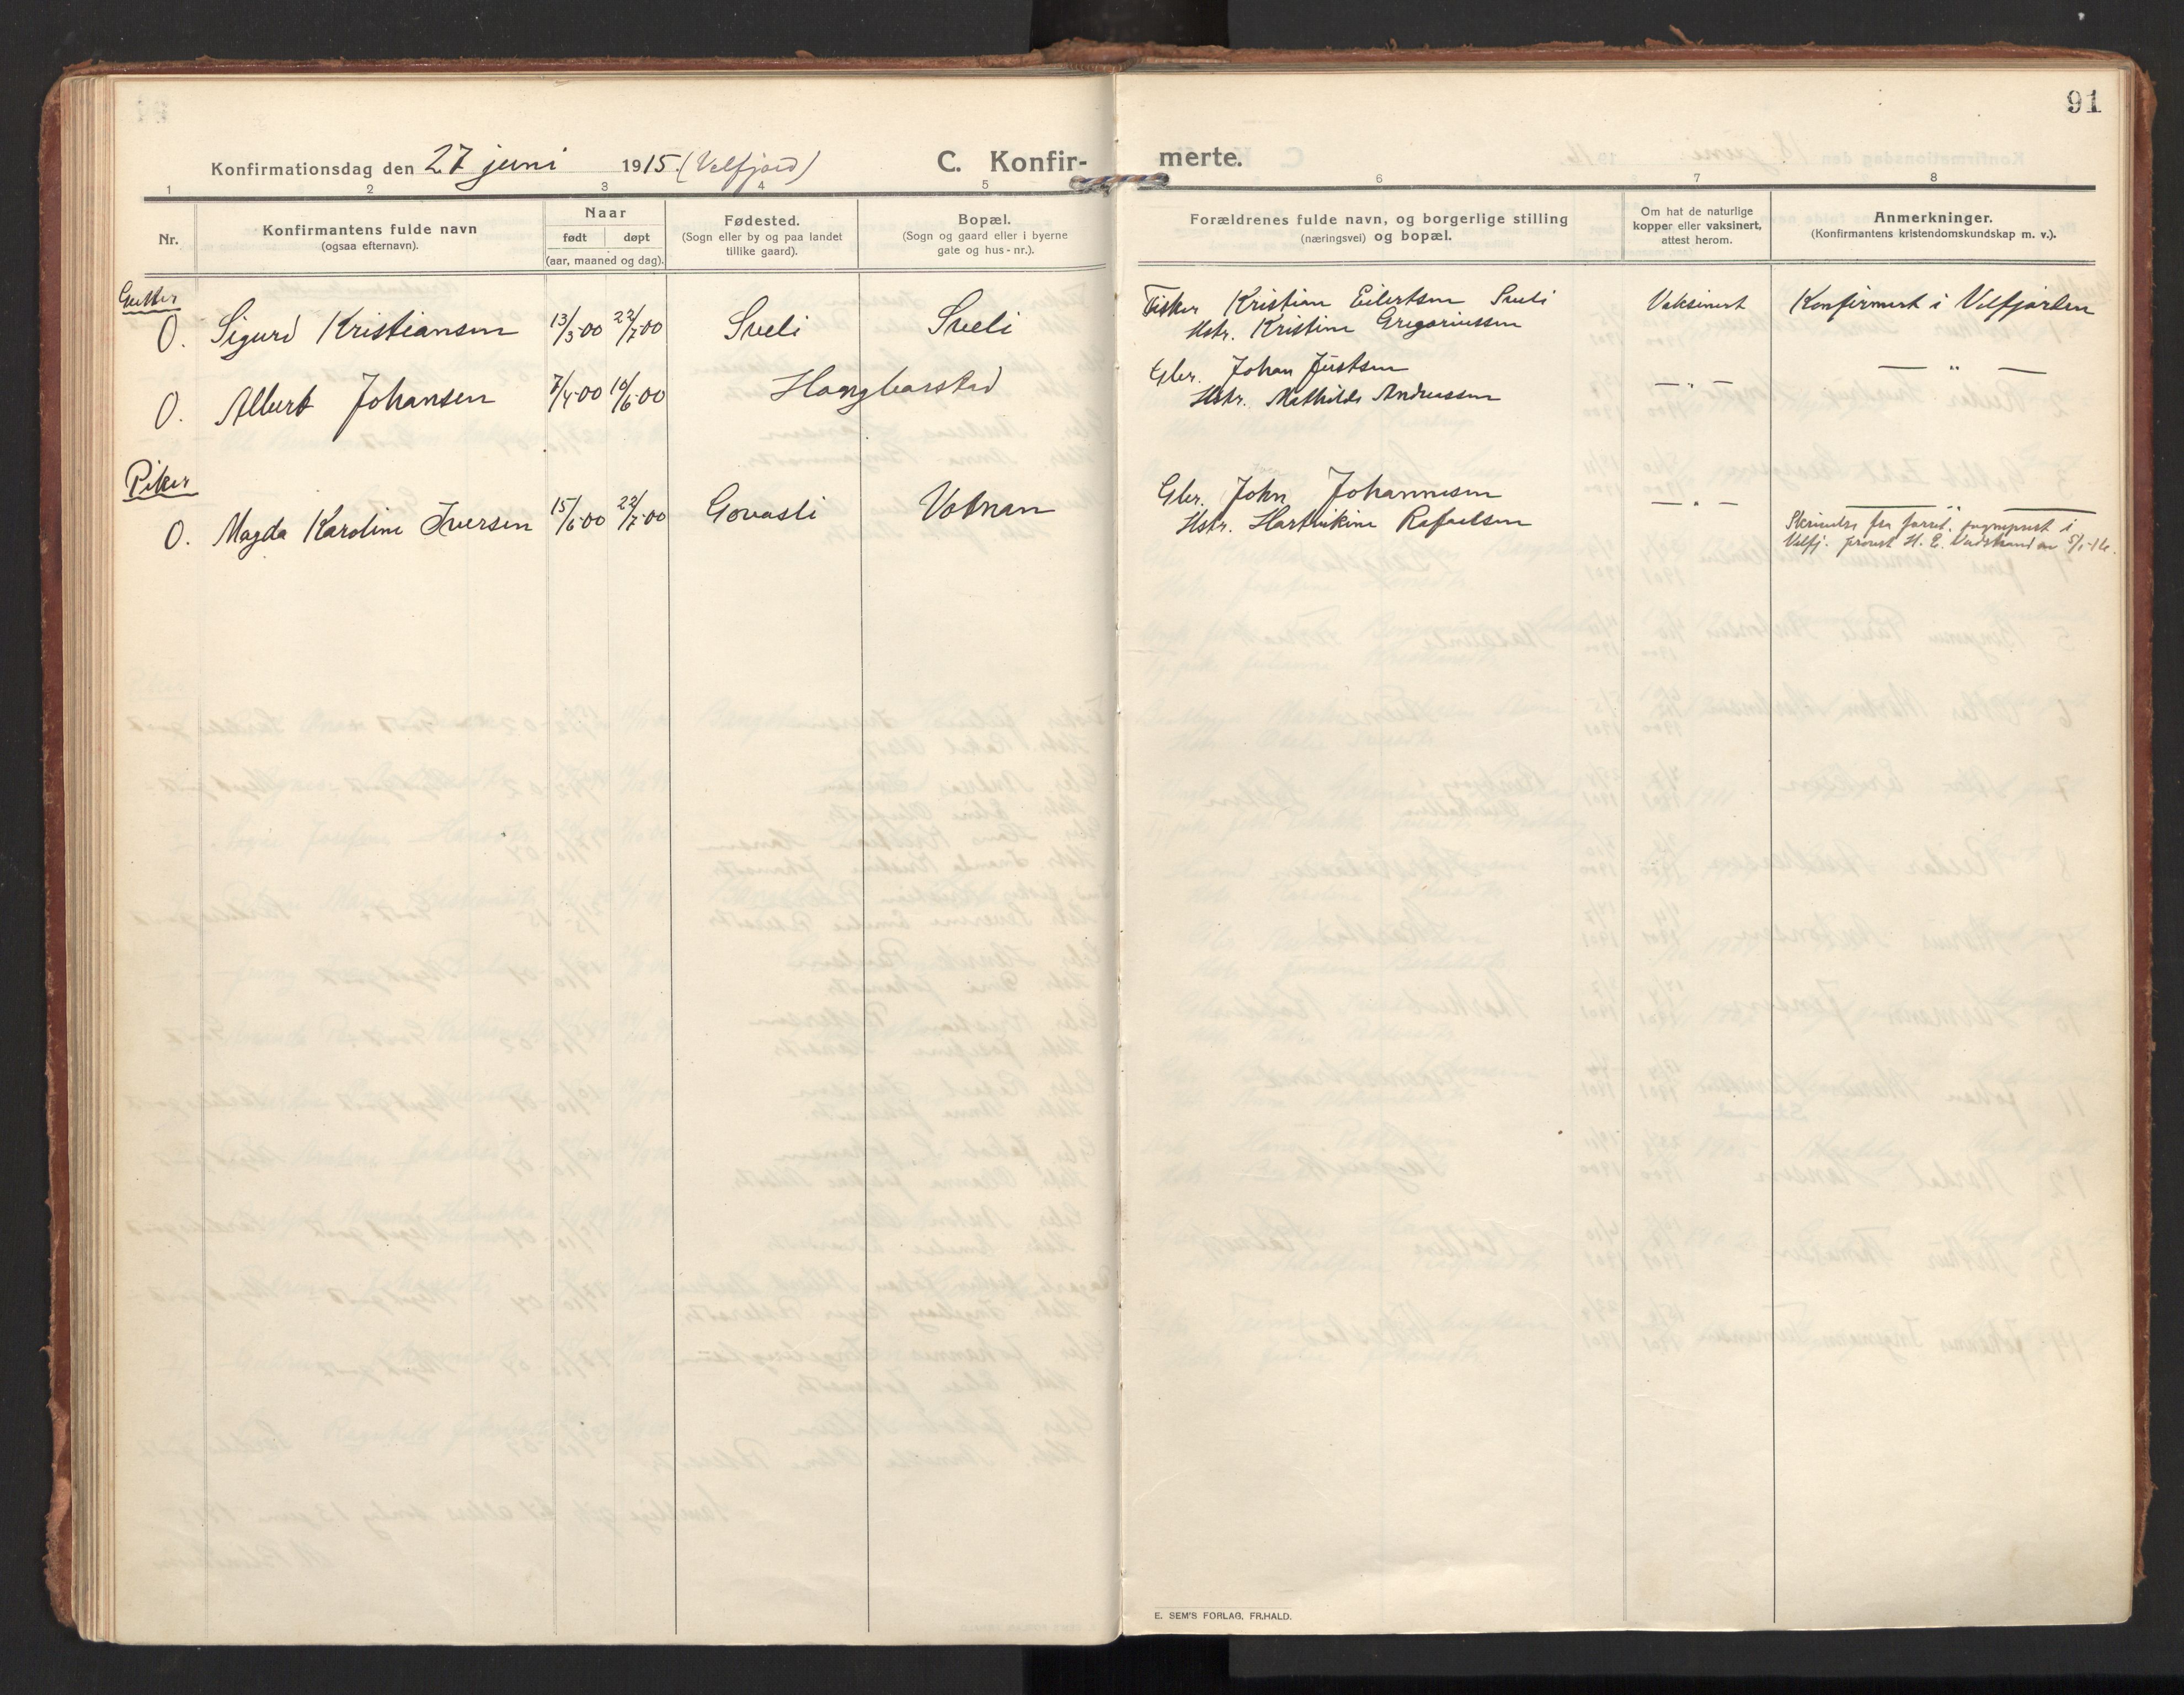 91
Konfirmationsdag den 27 juni 1915. (Velfjord) C. Konfir- merte.
1 2 3 4 5 6 7 8
Nr.
Konfirmantens fulde navn
(ogsaa efternavn).
Naar
født døpt
(aar, maaned og dag).
Fødested.
(Sogn eller by og paa landet
tillike gaard).
Bopæl.
(Sogn og gaard eller i byerne
gate og hus-nr.).
Forældrenes fulde navn, og borgerlige stilling
(næringsvei) og bopæl.
Om hat de naturlige
kopper eller vaksinert,
attest herom.
Anmerkninger.
(Konfirmantens kristendomskundskap m. v.).
Gutter
O. Sigurd Kristiansen 13/3-00 22/7-00 Sveli Sveli
Fisker Kristian Eilertsen Sveli
Hstr. Kristine Gregoriussen
Vaksinert Konfirmert i Velfjorden
O. Albert Johansen 7/4-00 10/6-00 Hongbarstad
Gbr. Johan Justsen
Hstr. Mathilde Andreassen
— „ — — „ —
Piker
O. Magda Karoline Iversen 15/6-00 22/7-00 Govasli Votnan
Gbr. John Johannesen
Hstr. Hartvikine Rafaelsen
— „ — — „ —
Skrivelse fra forret. sogneprest i
Velfj. provst H. E. 5/1-16.
E. SEM'S FORLAG, FR.HALD.